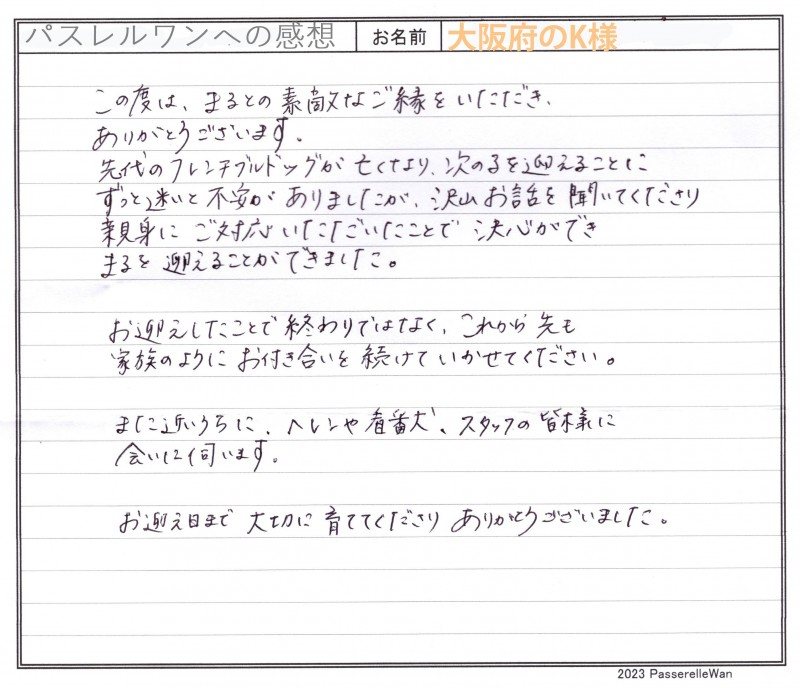 パスレルワンへの感想 お名前 大阪府のK様
この度は、まるとの素敵なご縁をいただき、
ありがとうございます。
先代のフレンチブルドッグが亡くなり、次の子を迎えることに
ずっと迷いと不安がありましたが、沢山お話を聞いてくださり
親身にご対応いただいたことで決心ができ
まるを迎えることができました。
お迎えしたことで終わりではなく、これから先も
家族のようにお付き合いを続けていかせてください。
また近いうちに、ヘレンや看番犬、スタッフの皆様に
会いに伺います。
お迎え日まで大切に育ててくださりありがとうございました。
2023 PasserelleWan